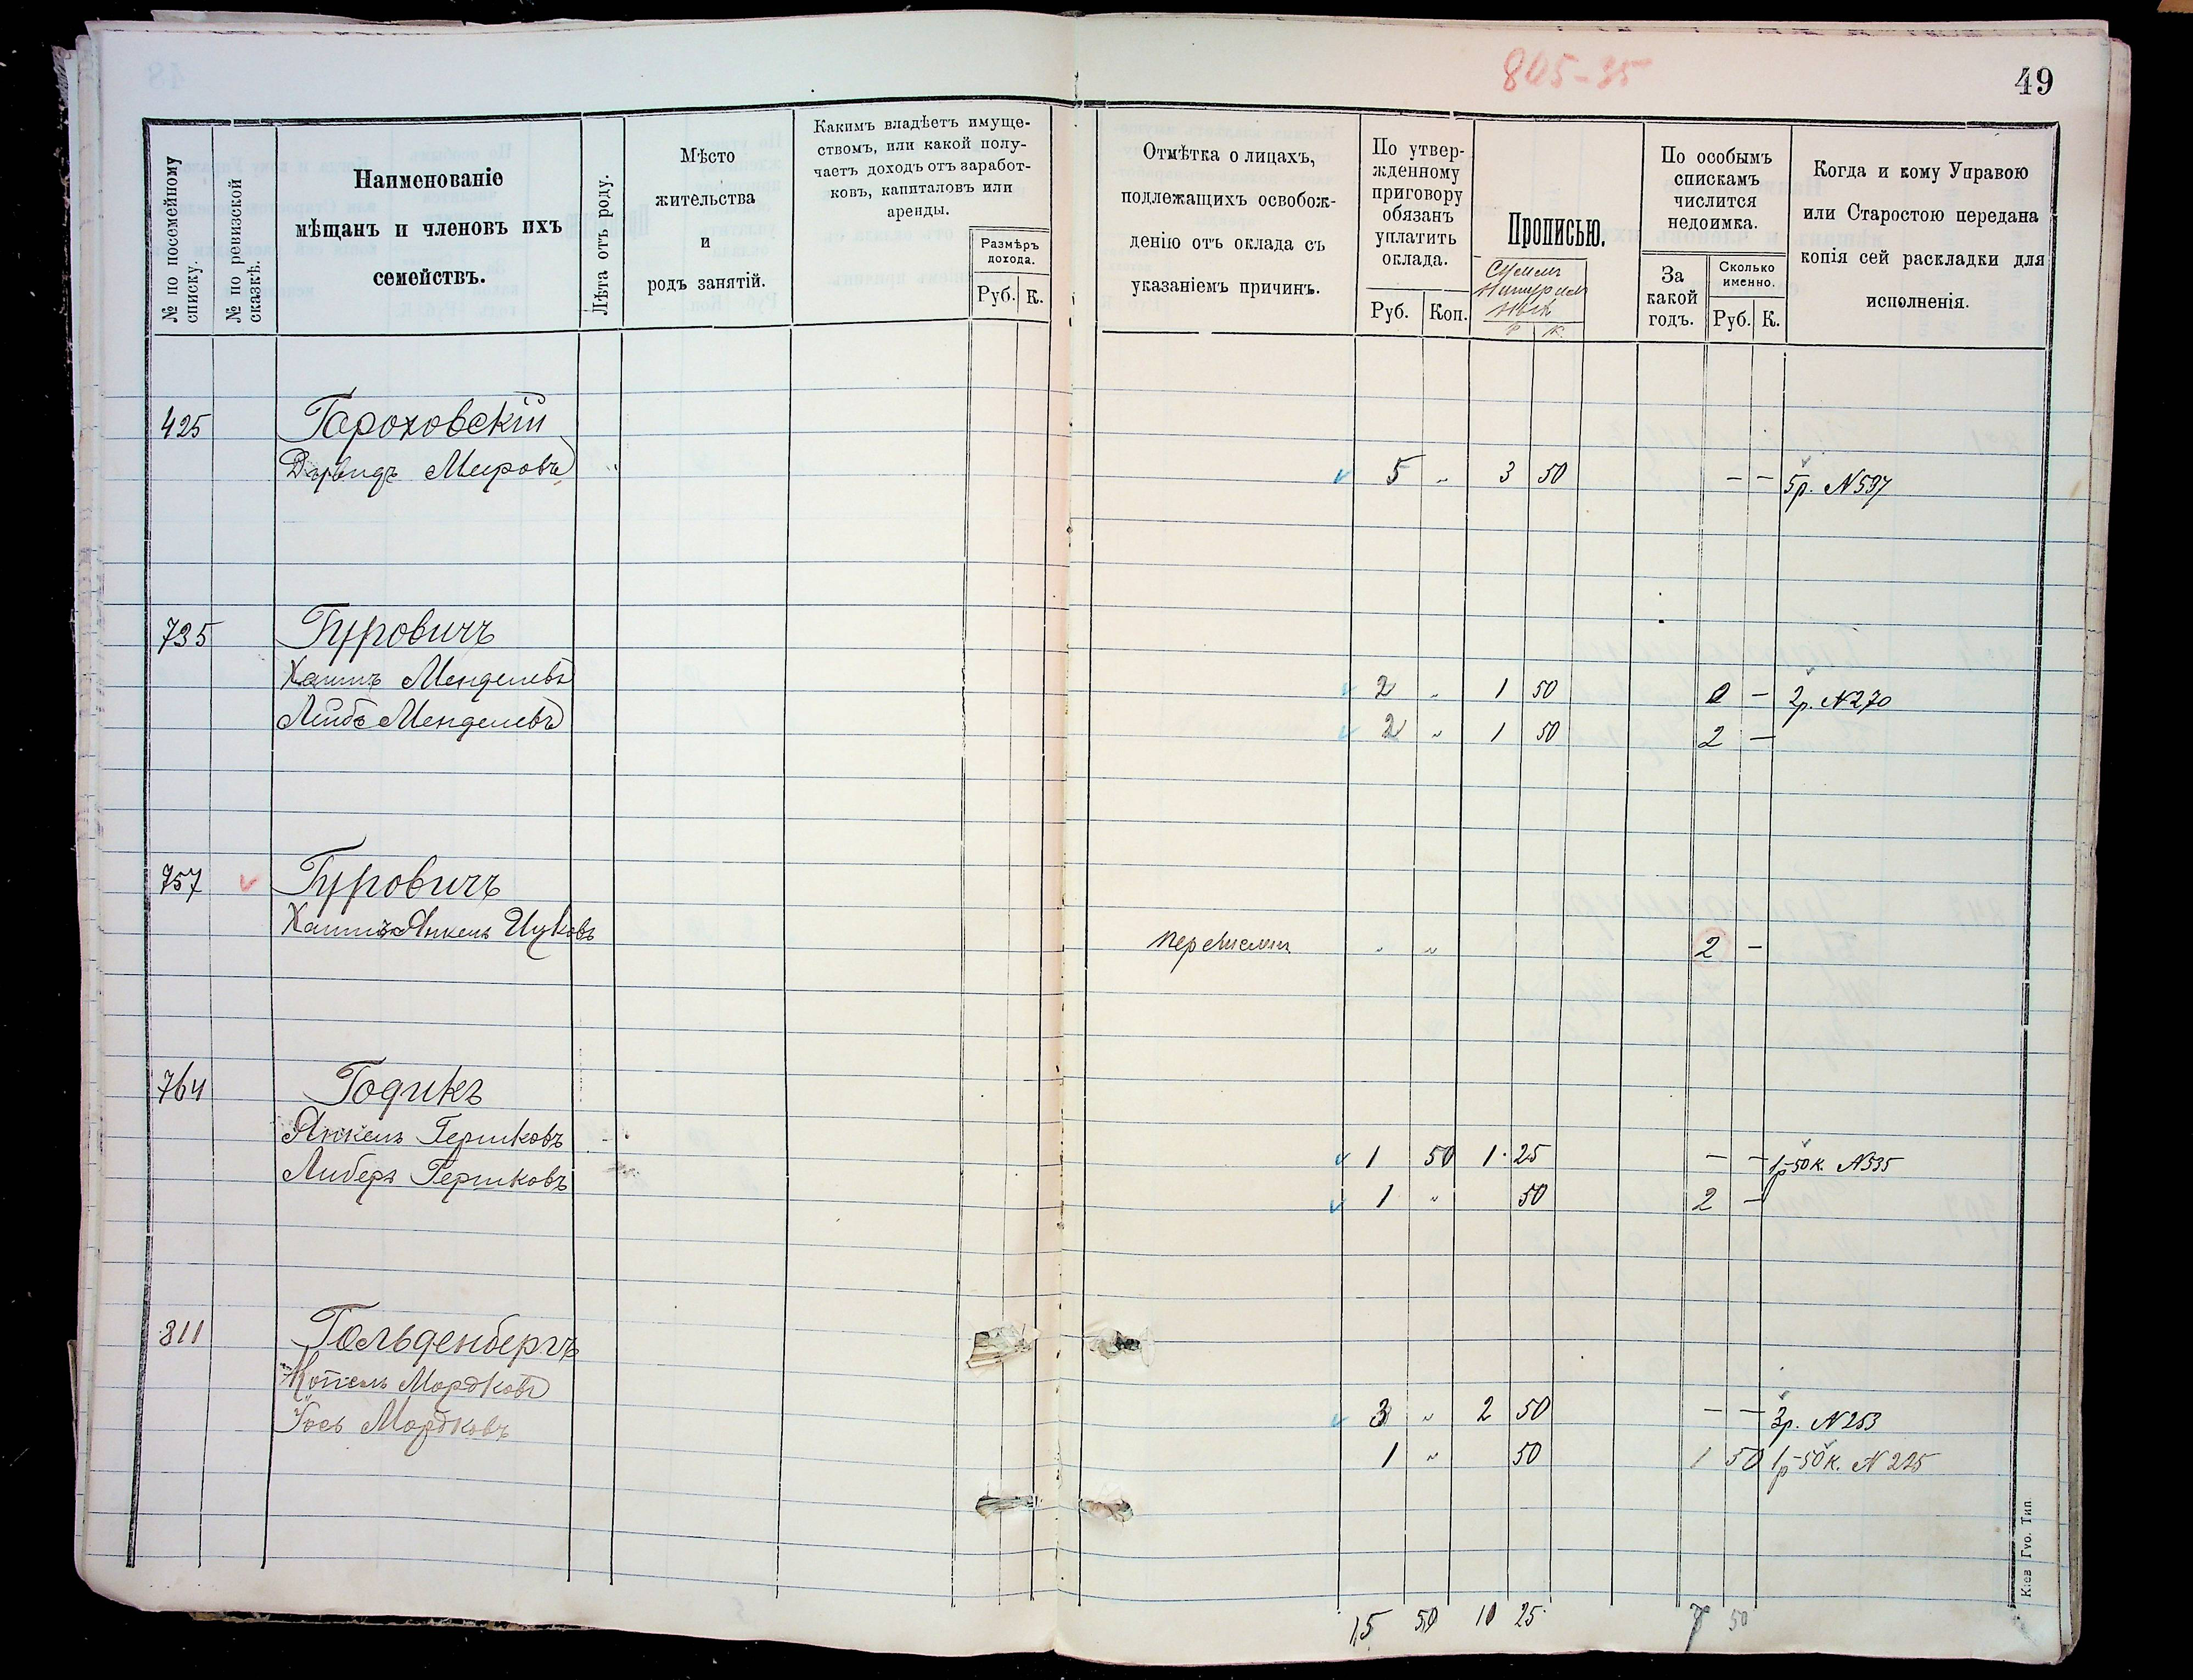 805-35
49
№ по посемейному списку.
№ по ревизской сказкѣ.
Наименованіе
мѣщанъ и членовъ ихъ
семействъ.
Лѣта отъ роду.
Мѣсто
жительства
и
родъ занятій.
Какимъ владѣетъ имуще-
ствомъ, или какой полу-
чаетъ доходъ отъ заработ-
ковъ, капиталовъ или
аренды.
Размѣръ
дохода.
Руб. К.
Отмѣтка о лицахъ,
подлежащихъ освобож-
денію отъ оклада съ
указаніемъ причинъ.
По утвер-
жденному
приговору
обязанъ
уплатить
оклада.
Руб. Коп.
Прописью.
Р К.
По особымъ
спискамъ
числится
недоимка.
За
какой
годъ.
Сколько
именно.
Руб. К.
Когда и кому Управою
или Старостою передана
копія сей раскладки для
исполненія.
425 Гороховскій
Давидъ Мееровъ " 5 " 3 50 — — 5р. N 597
735 Гуровичъ
Хаимъ Менделевъ 2 " 1 50 — 2р. N 270
Лейбъ Менделевъ 2 " 1 50 2 —
757 Гуровичъ
Хаимъ Янкель Ицковъ " " 2 —
764 Годикъ
Янкель Гершковъ 1 50 1 25 — — 1р-50к. N 535
Либеръ Гершковъ 1 " 50 2 —
811 Гольденбергъ
Копель Мордковъ 3 " 2 50 — — 3р. N 253
Іось Мордковъ 1 " 50 1 50 1р-50к. N 225
15 50 10 25 7 50
Кіев Гуо. Тип.